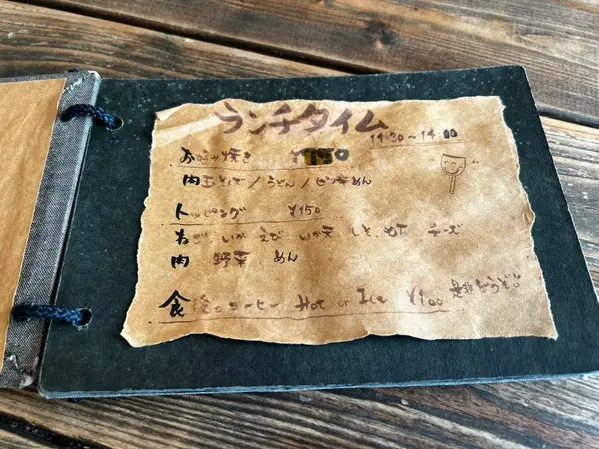 ランチタイム
11:30～14:00
お好み焼き ¥950
肉玉そば/うどん/ピリ辛めん
トッピング ¥150
ねぎ いか えび いか天 しそ もち チーズ
肉 野菜 めん
食後のコーヒー Hot or Ice ¥100 是非どうぞ